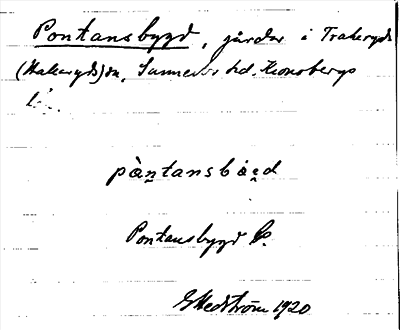 Pontansbygd, gårdar i Trakeryds
(Hakaryds) sn, Sunnerbo hd. Kronobergs
län.
pàn̰tansbẁe̮d
Pontansbygd
G Hedström 1920